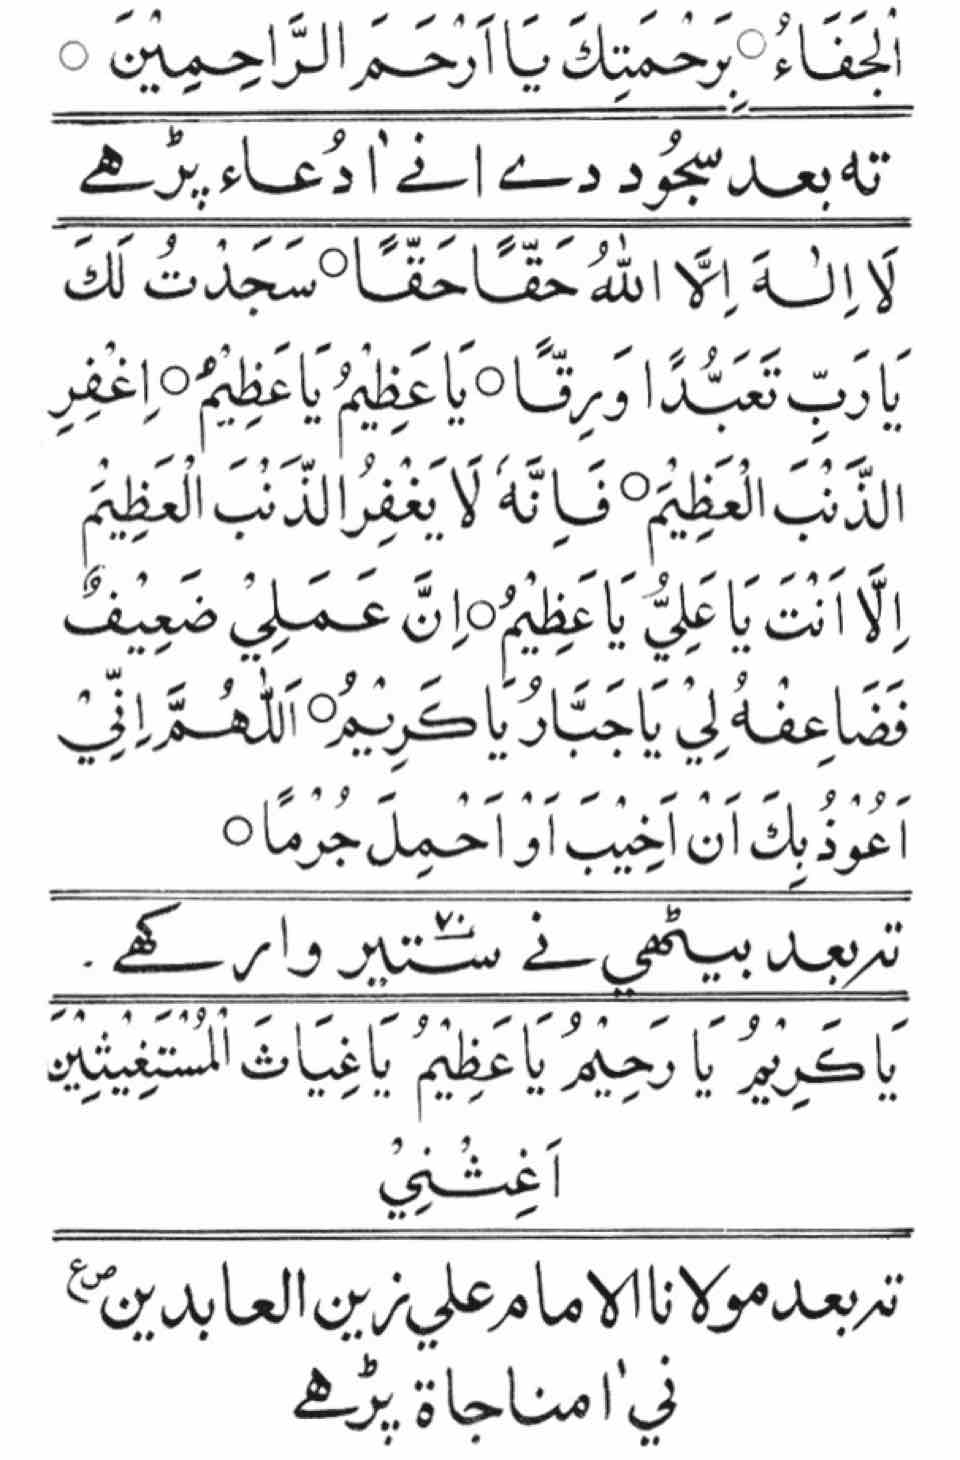 الْجَفَاءُ ○ بِرَحْمَتِكَ يَا اَرْحَمَ الرَّاحِمِيْنَ ○
ته بعد سجُود دے انے اٰ دُعاء پڑهے
لَا اِلٰهَ اِلَّا اللّٰهُ حَقًّا حَقًّا ○ سَجَدْتُ لَكَ
يَا رَبِّ تَعَبُّدًا وَرِقًّا ○ يَا عَظِيْمُ يَا عَظِيْمُ ○ اِغْفِرِ
الذَّنْبَ الْعَظِيْمَ ○ فَاِنَّهٗ لَا يَغْفِرُ الذَّنْبَ الْعَظِيْمَ
اِلَّا اَنْتَ يَا عَلِيُّ يَا عَظِيْمُ ○ اِنَّ عَمَلِيْ ضَعِيْفٌ
فَضَاعِفْهُ لِيْ يَا جَبَّارُ يَا كَرِيْمُ ○ اَللّٰهُمَّ اِنِّيْ
اَعُوْذُ بِكَ اَنْ اَخِيْبَ اَوْ اَحْمِلَ جُرْمًا ○
ته بعد بيٹهي نے ستير ٧٠ وار كهے .
يَا كَرِيْمُ يَا رَحِيْمُ يَا عَظِيْمُ يَا غِيَاثَ الْمُسْتَغِيْثِيْنَ
اَغِثْنِيْ
ته بعد مولانا الامام علي زين العابدين ص ع
ني اٰ مناجاة پڑهے